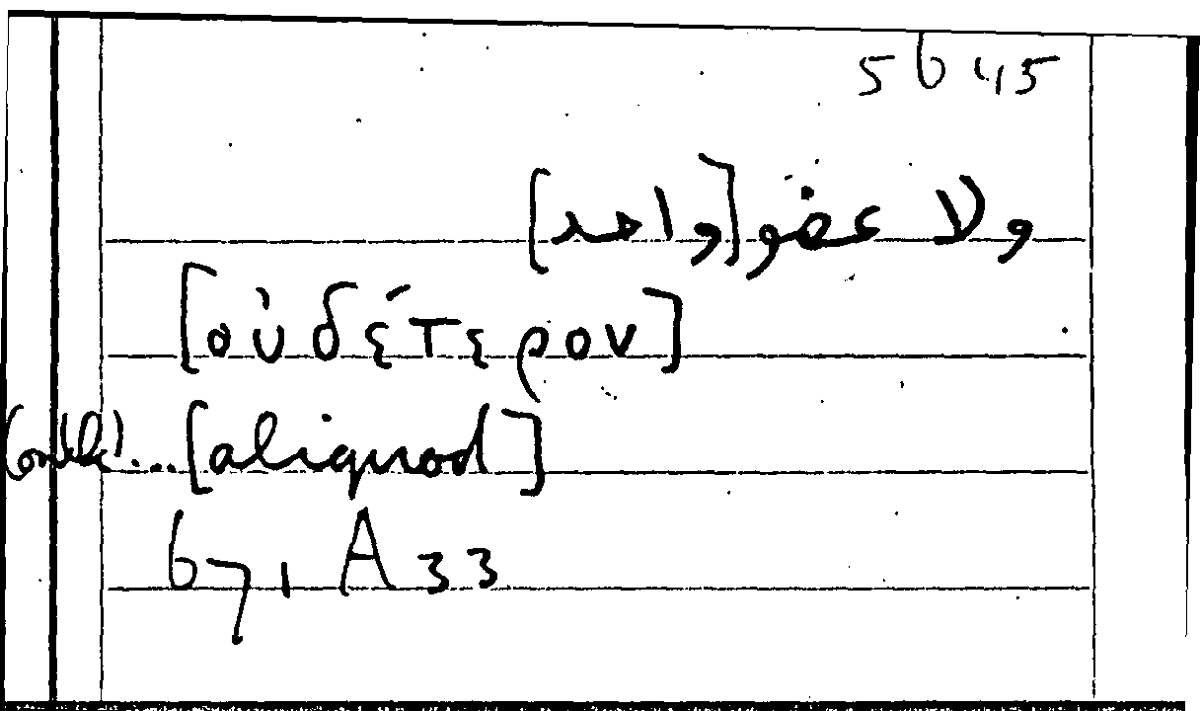 ولا عضو [واحد]
[οὐδέτερον]
...[aliquod]
671 A 33